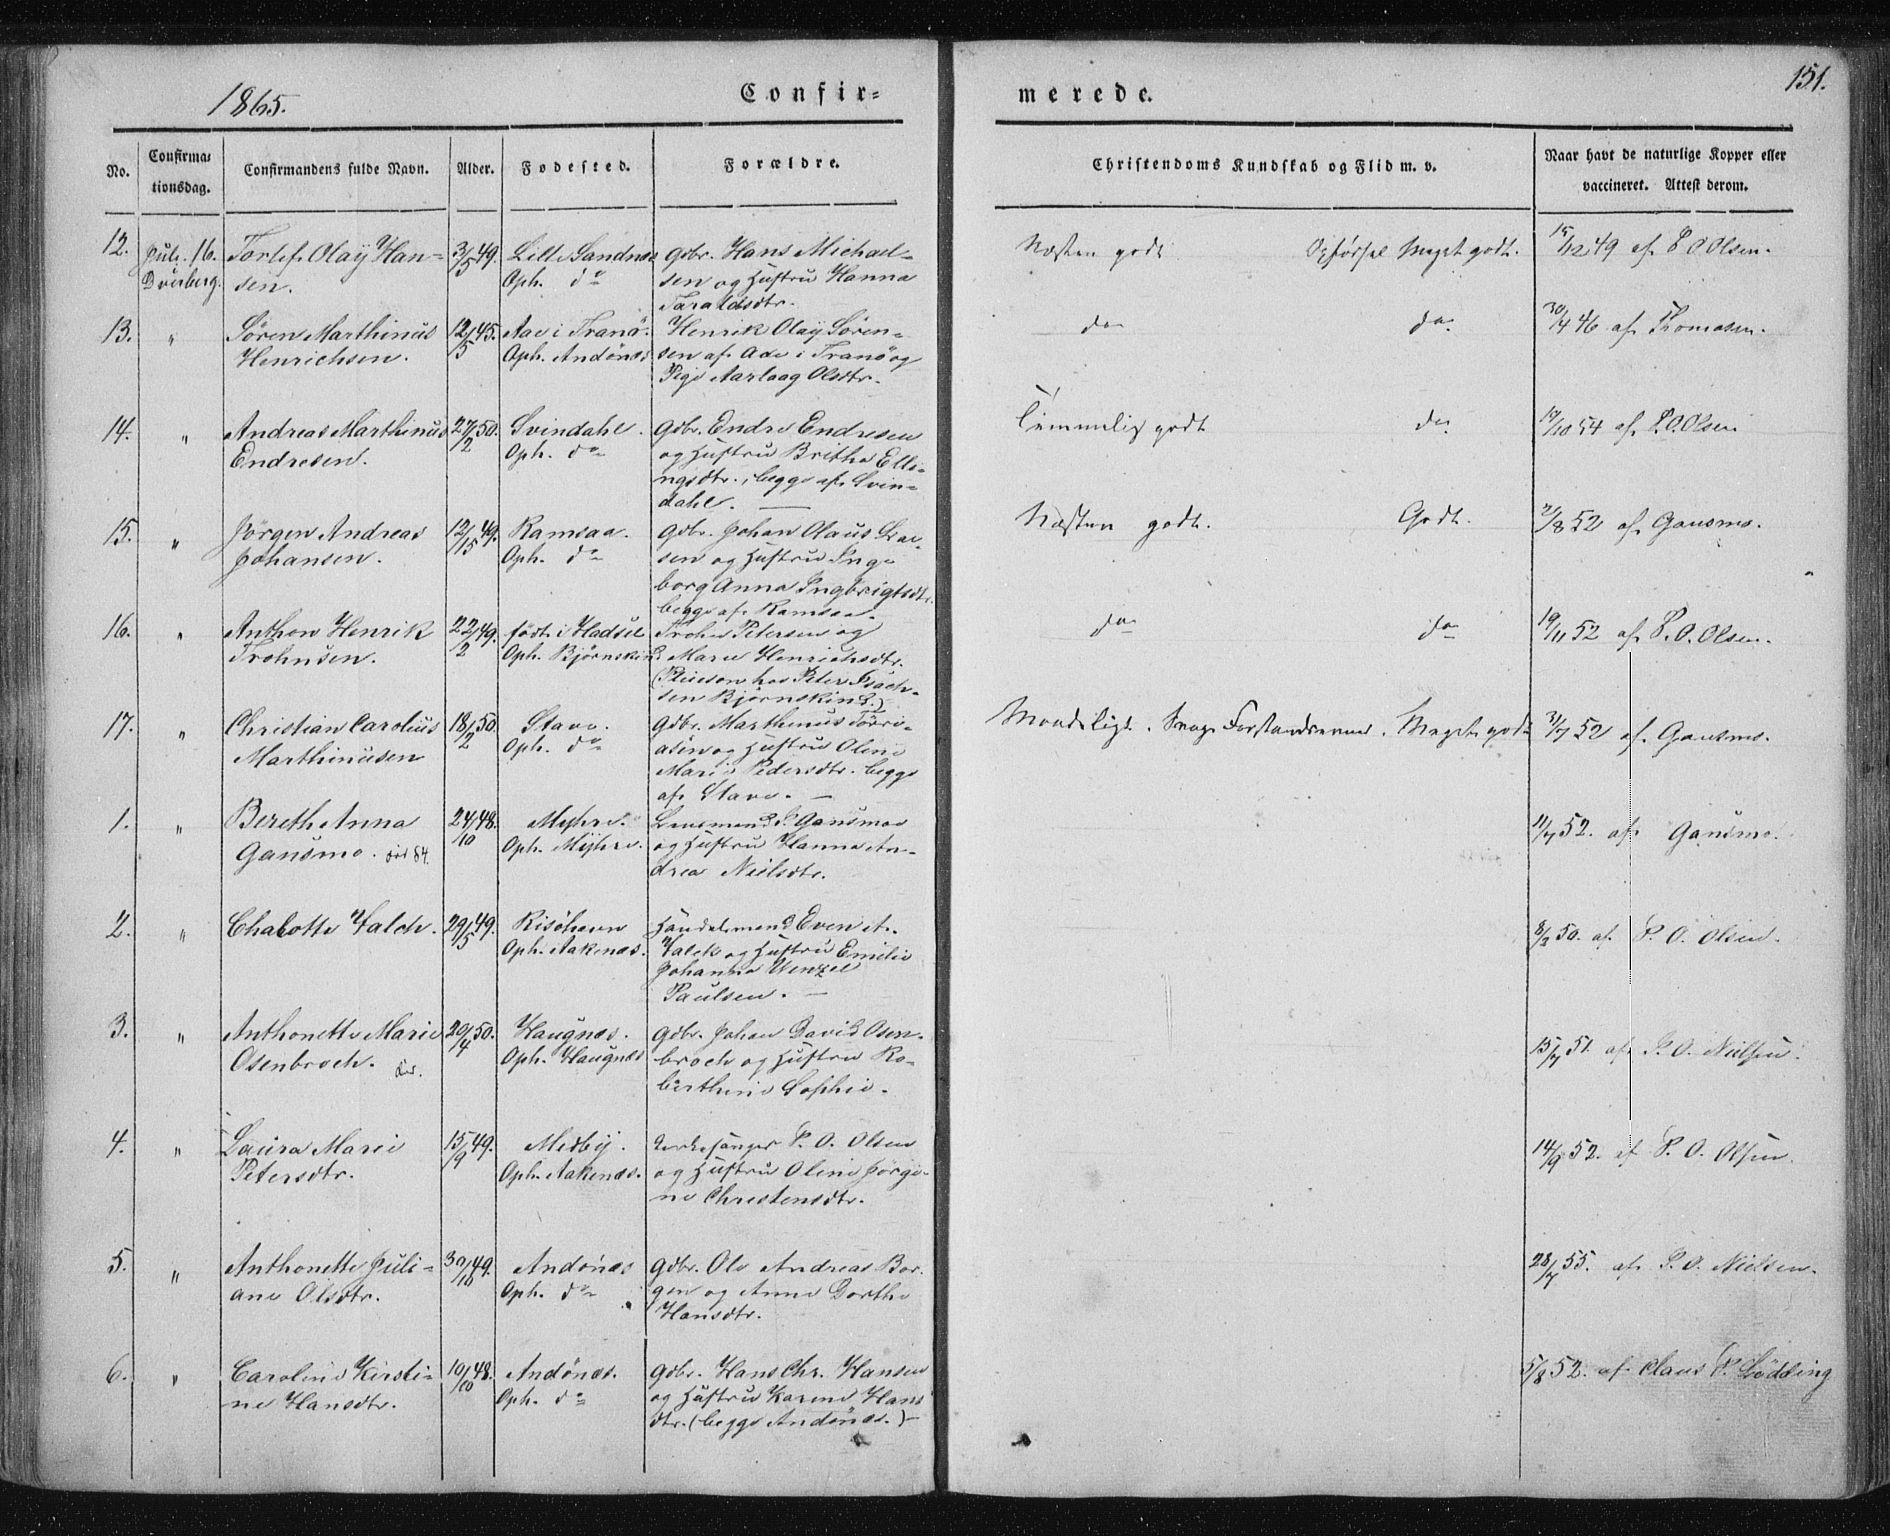 1865.
Confir-
merede.
151.
No.
Confirma-
tionsdag.
Confirmandens fulde Navn.
Alder.
Fødested.
Forældre.
Christendoms Kundskab og Flid m. v.
Naar havt de naturlige Kopper eller
vaccineret. Attest derom.
12. Juli 16. Dverberg. Torlef Olay Han-
sen.
3/5 49. Lille Sandnæs
Oph. do
Gdbr. Hans Michael-
sen og Hustru Hanna
Taraldsdtr.
Næsten godt Opførsel Meget godt.
15/12 49 af P. O. Olsen.
13. " Søren Marthinus
Henrichsen.
12/5 45. Aae i Tranø.
Oph. Andønæs
Henrik Olay Søren-
sen af Aae i Tranø og
Pige Aarlaag Olsdtr.
do do.
30/4 46 af Thomasen.
14. " Andreas Marthinus
Endresen.
27/2 50. Svindahl.
Oph. do
Gdbr. Endre Endresen
og Hustru Brithe Elli-
ngsdtr., begge af Svin-
dahl.
Temmelig godt do
19/10 54 af P. O. Olsen
15. " Jørgen Andreas
Johansen.
12/15 49. Ramsaa.
Oph. do
Gdbr. Johan Olaus Lar-
sen og Hustru Inge-
borg Anna Ingbrigtsdtr.
begge af Ramsaa.
Næsten godt. Godt.
2/8 52 af Gansmo.
16. " Anthon Henrik
Trohnsen.
22/2 49. født i Hadsel
Oph. Bjørnskind
Trohn Petersen og
Marie Henrichsdtr.
(Pleiesøn hos Peter Isach-
sen Bjørnskind.)
do do
19/11 52 af P. O. Olsen.
17. " Christian Carolius
Marthinusen
18/2 50. Stave.
Oph. do
Gdbr. Marthinus Tørri-
asen og Hustru Oline
Marie Pedersdtr. begge
af Stave.
Maadeligt. Svage Forstandsevner. Meget godt
31/7 52 af Gansmo.
1. " Bereth Anna
Gansmo. død 84.
24/10 48. Myhre.
Oph. Myhre.
Lensmand P. Gansmoe
og Hustru Hanna An-
drea Nielsdtr.
11/7 52. af Gansmo.
2. " Chalotte Falch.
29/5 49. Risøhavn
Oph. Aakenæs.
Handelsmand Even A.
Falck og Hustru Emilie
Johanna Wenzel
Paulsen.
8/2 50. af P. O. Olsen.
3. " Anthonette Marie
Osenbroch. død.
20/4 50. Haugnæs.
Oph. Haugnæs
Gdbr. Johan David Osen-
broch og Hustru Ro-
berthine Sophie.
15/7 51 af P. O. Nielsen.
4. " Laura Marie
Petersdtr.
15/9 49. Medby.
Oph. Aakenæs.
Kirkesanger P. O. Olsen
og Hustru Oline Jørgi-
ne Christensdtr.
14/9 52. af P. O. Olsen.
5. " Anthonette Juli-
ane Olsdtr.
30/10 49. Andønæs
Oph. do
Gdbr. Ole Andreas Bor-
gen og Anne Dorthe
Hansdtr.
28/7 55. af P. O. Nielsen.
6. " Caroline Kirsti-
ne Hansdtr.
10/10 48. Andønæs.
Oph. do
Gdbr. Hans Chr. Hansen
og Hustru Karene Hans
dtr. (begge Andønæs.)
5/8 52. af Claus P. Lødding